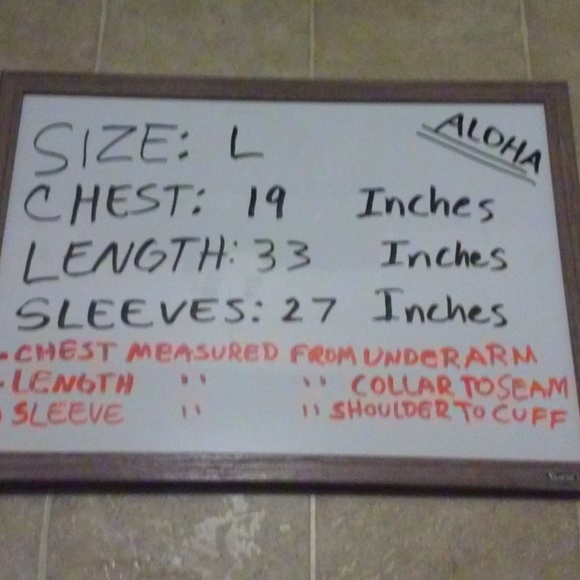 ALOHA
SIZE: L
CHEST: 19 Inches
LENGTH: 33 Inches
SLEEVES: 27 Inches
- CHEST MEASURED FROM UNDERARM
- LENGTH " " COLLAR TO SEAM
- SLEEVE " " SHOULDER TO CUFF